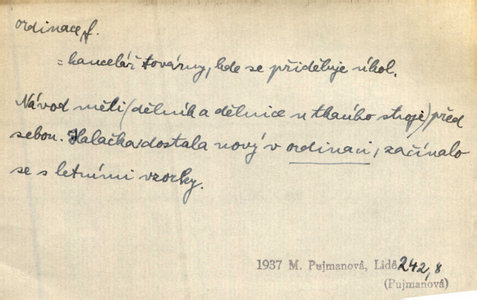 ordinace, f.
= kancelář továrny, kde se přiděluje úkol.
Návod měli (dělník a dělnice u tkacího stroje) před
sebou. Halačka dostala nový v ordinaci, začínalo
se s letními vzorky.
1937 M. Pujmanová, Lidé 242, 8
(Pujmanová)